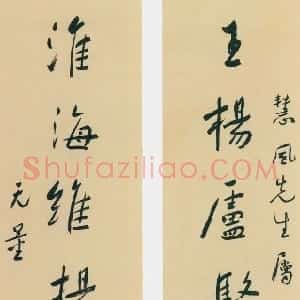 慧風先生屬
王楊盧駱
淮海維揚
无量
Shufaziliao.com